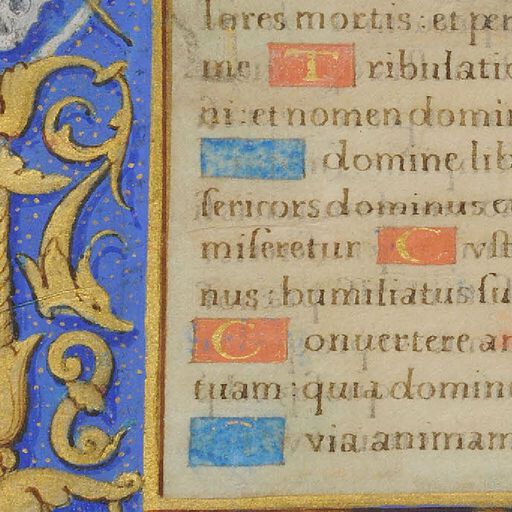 lores mortis : et per
me Tribulatio
ni : et nomen domin
domine lib
sericors dominus et
miseretur Cust
nus : humiliatus su
Conuertere an
tuam : quia domine
via animam